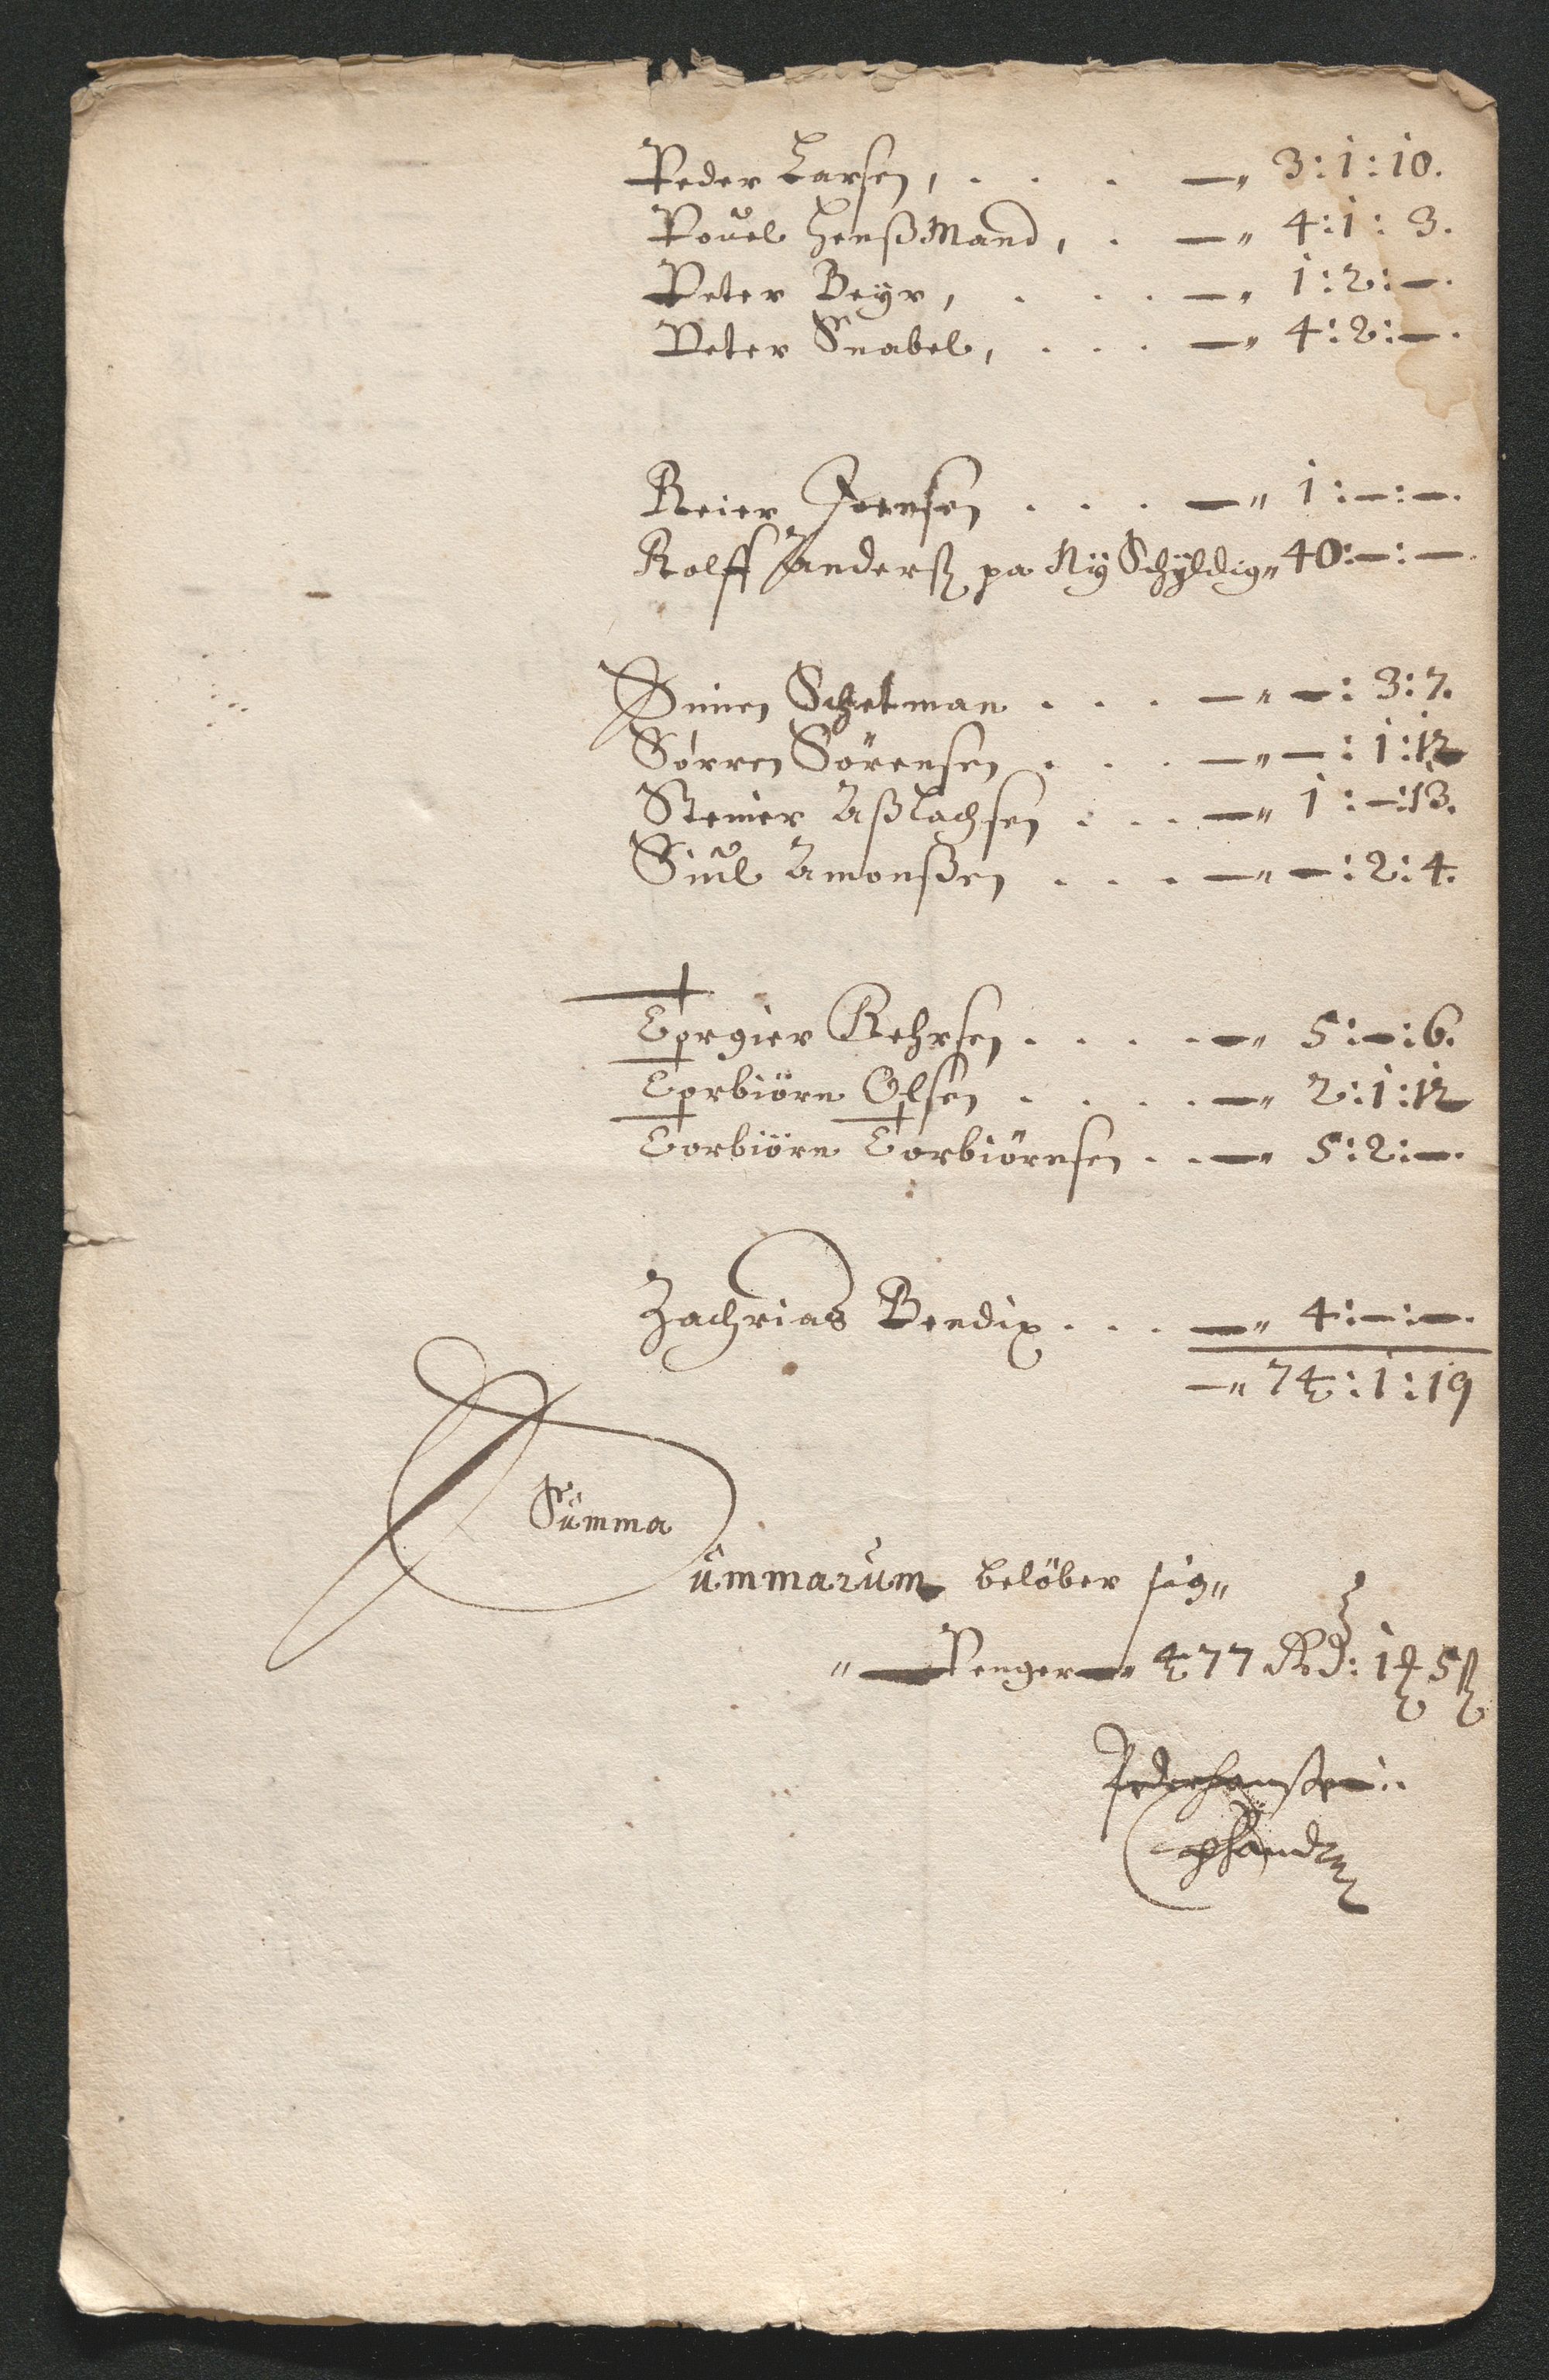 Peder Larsen, . . . —" 3:1:10.
Pouel HenßMand, . —" 4:1:3.
Peter Beyr, . . . —" 1:2:—.
Peter Snabel, . . . —" 4:2:—.
Reier Joensen . . . —" 1:—:—.
Rolff Anderss pa Ny Schyldig" 40:—:—.
Simen Schetman . . . —" —:3:7.
Sörren Sörensen . . . —" —:1:12
Steiner Aßlachsen . . . —" 1:—:13.
Siul Amonßen . . . —" —:2:4.
Torgier Rehrsen . . . . —" 5:—:6.
Torbiörn Olsen . . . . —" 2:1:12
Torbiörn Torbiörnsen . . —" 5:2:—.
Zachrias Bendix . . . —" 4:—:—.
—" 74:1:19
Summa
ummarum belöber sig"
"—Penger—" 477 Rd: 1 5 ß